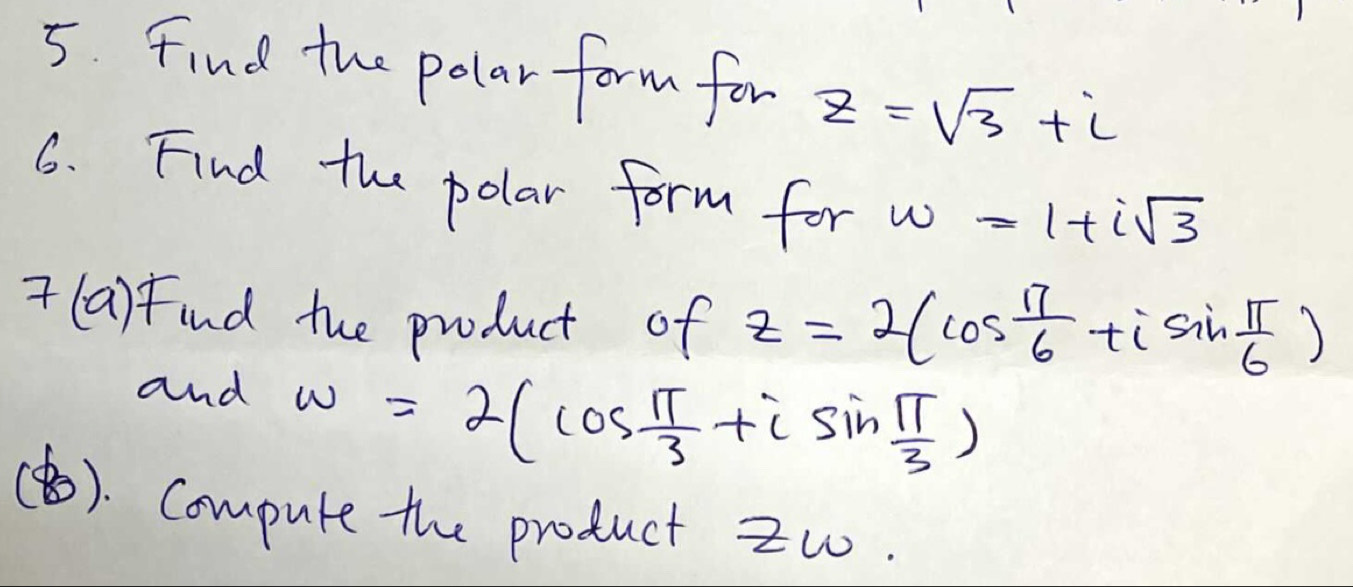 5. Find the polar form for z = √3 + i
6. Find the polar form for w = 1+i√3
7(a) Find the product of z = 2(cos π/6 + i sin π/6)
and w = 2(cos π/3 + i sin π/3)
(b). Compute the product zw.